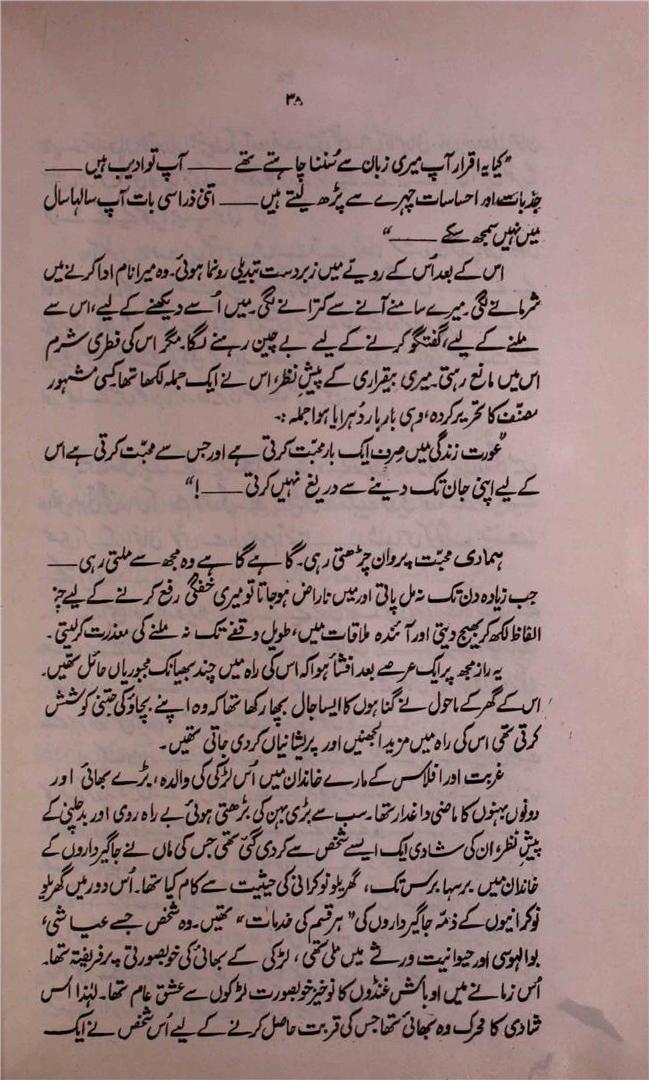 ۳۸
"کیا یہ اقرار آپ میری زبان سے سُننا چاہتے تھے —— آپ تو ادیب ہیں ——
جذبات اور احساسات چہرے سے پڑھ لیتے ہیں —— اتنی ذرا سی بات آپ سالہا سال
میں نہیں سمجھ سکے ——"
اس کے بعد اُس کے رویے میں زبردست تبدیلی رونما ہوئی۔ وہ میرا نام ادا کرنے میں
شرمانے لگی۔ میرے سامنے آنے سے کترانے لگی۔ میں اُسے دیکھنے کے لیے، اس سے
ملنے کے لیے، گفتگو کرنے کے لیے بے چین رہنے لگا۔ مگر اس کی فطری شرم
اس میں مانع رہتی۔ میری بیقراری کے پیشِ نظر، اس نے ایک جملہ لکھا تھا کسی مشہور
مصنّف کا تحریر کردہ، وہی بار بار دُہرایا ہوا جملہ :۔
"عورت زندگی میں صرف ایک بار محبّت کرتی ہے اور جس سے محبّت کرتی ہے اس
کے لیے اپنی جان تک دینے سے دریغ نہیں کرتی ——!"
ہماری محبّت پروان چڑھتی رہی۔ گاہے گاہے وہ مجھ سے ملتی رہی ——
جب زیادہ دن تک نہ مل پاتی اور میں ناراض ہو جاتا تو میری خفگی رفع کرنے کے لیے چند
الفاظ لکھ کر بھیج دیتی اور آئندہ ملاقات میں، طویل وقفے تک نہ ملنے کی معذرت کر لیتی۔
یہ راز مجھ پر ایک عرصے بعد افشا ہوا کہ اس کی راہ میں چند بھیانک مجبوریاں حائل تھیں۔
اس کے گھر کے ماحول نے گناہوں کا ایسا جال بچھا رکھا تھا کہ وہ اپنے بچاؤ کی جتنی کوشش
کرتی تھی اس کی راہ میں مزید الجھنیں اور پریشانیاں کر دی جاتی تھیں۔
غربت اور افلاس کے مارے خاندان میں اُس لڑکی کی والدہ، بڑے بھائی اور
دونوں بہنوں کا ماضی داغدار تھا۔ سب سے بڑی بہن کی بڑھتی ہوئی بے راہ روی اور بدچلنی کے
پیشِ نظر، ان کی شادی ایک ایسے شخص سے کر دی گئی تھی جس کی ماں نے جاگیرداروں کے
خاندان میں برسہا برس تک، گھریلو نوکرانی کی حیثیت سے کام کیا تھا۔ اُس دور میں گھریلو
نوکرانیوں کے ذمّہ جاگیرداروں کی "ہر قسم کی خدمات" تھیں۔ وہ شخص جسے عیاشی،
بوالہوسی اور حیوانیت ورثے میں ملی تھی، لڑکی کے بھائی کی خوبصورتی پر فریفتہ تھا۔
اُس زمانے میں اوباش غنڈوں کا نوخیز خوبصورت لڑکوں سے عشق عام تھا۔ لہٰذا اس
شادی کا محرک وہ بھائی تھا جس کی قربت حاصل کرنے کے لیے اُس شخص نے ایک